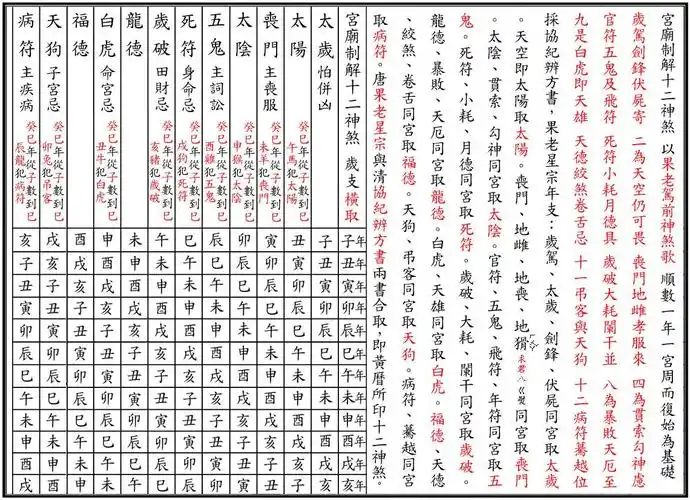 宮廟制解十二神煞 以果老駕前神煞歌 順數一年一宮周而復始為基礎
歲駕劍鋒伏屍寄 二為天空仍可畏 喪門地雌孝服來 四為貫索勾神慮
官符五鬼及飛符 死符小耗月德具 歲破大耗闌干並 八為暴敗天厄至
九是白虎即天雄 天德絞煞卷舌忌 十一吊客與天狗 十二病符驀越位
採協紀辨方書，果老星宗年支：歲駕、太歲、劍鋒、伏屍同宮取太歲
。天空即太陽取太陽。喪門、地雌、地喪、地猾同宮取喪門
。太陰、貫索、勾神同宮取太陰。官符、五鬼、飛符、年符同宮取五
鬼。死符、小耗、月德同宮取死符。歲破、大耗、闌干同宮取歲破。
龍德、暴敗、天厄同宮取龍德。白虎、天雄同宮取白虎。福德、天德
、絞煞、卷舌同宮取福德。天狗、吊客同宮取天狗。病符、驀越同宮
取病符。唐果老星宗與清協紀辨方書兩書合取，即黃曆所印十二神煞。
宮廟制解十二神煞 歲支橫取 子年 丑年 寅年 卯年 辰年 巳年 午年 未年 申年 酉年 戌年 亥年
太歲 怕併凶 子 丑 寅 卯 辰 巳 午 未 申 酉 戌 亥
太陽 癸巳年從子數到巳 午馬犯太陽 丑 寅 卯 辰 巳 午 未 申 酉 戌 亥 子
喪門 主喪服 癸巳年從子數到巳 未羊犯喪門 寅 卯 辰 巳 午 未 申 酉 戌 亥 子 丑
太陰 癸巳年從子數到巳 申猴犯太陰 卯 辰 巳 午 未 申 酉 戌 亥 子 丑 寅
五鬼 主詞訟 癸巳年從子數到巳 酉雞犯五鬼 辰 巳 午 未 申 酉 戌 亥 子 丑 寅 卯
死符 身命忌 癸巳年從子數到巳 戌狗犯死符 巳 午 未 申 酉 戌 亥 子 丑 寅 卯 辰
歲破 田財忌 癸巳年從子數到巳 亥豬犯歲破 午 未 申 酉 戌 亥 子 丑 寅 卯 辰 巳
龍德 未 申 酉 戌 亥 子 丑 寅 卯 辰 巳 午
白虎 命宮忌 癸巳年從子數到巳 丑牛犯白虎 申 酉 戌 亥 子 丑 寅 卯 辰 巳 午 未
福德 酉 戌 亥 子 丑 寅 卯 辰 巳 午 未 申
天狗 子宮忌 癸巳年從子數到巳 卯兔犯吊客 戌 亥 子 丑 寅 卯 辰 巳 午 未 申 酉
病符 主疾病 癸巳年從子數到巳 辰龍犯病符 亥 子 丑 寅 卯 辰 巳 午 未 申 酉 戌